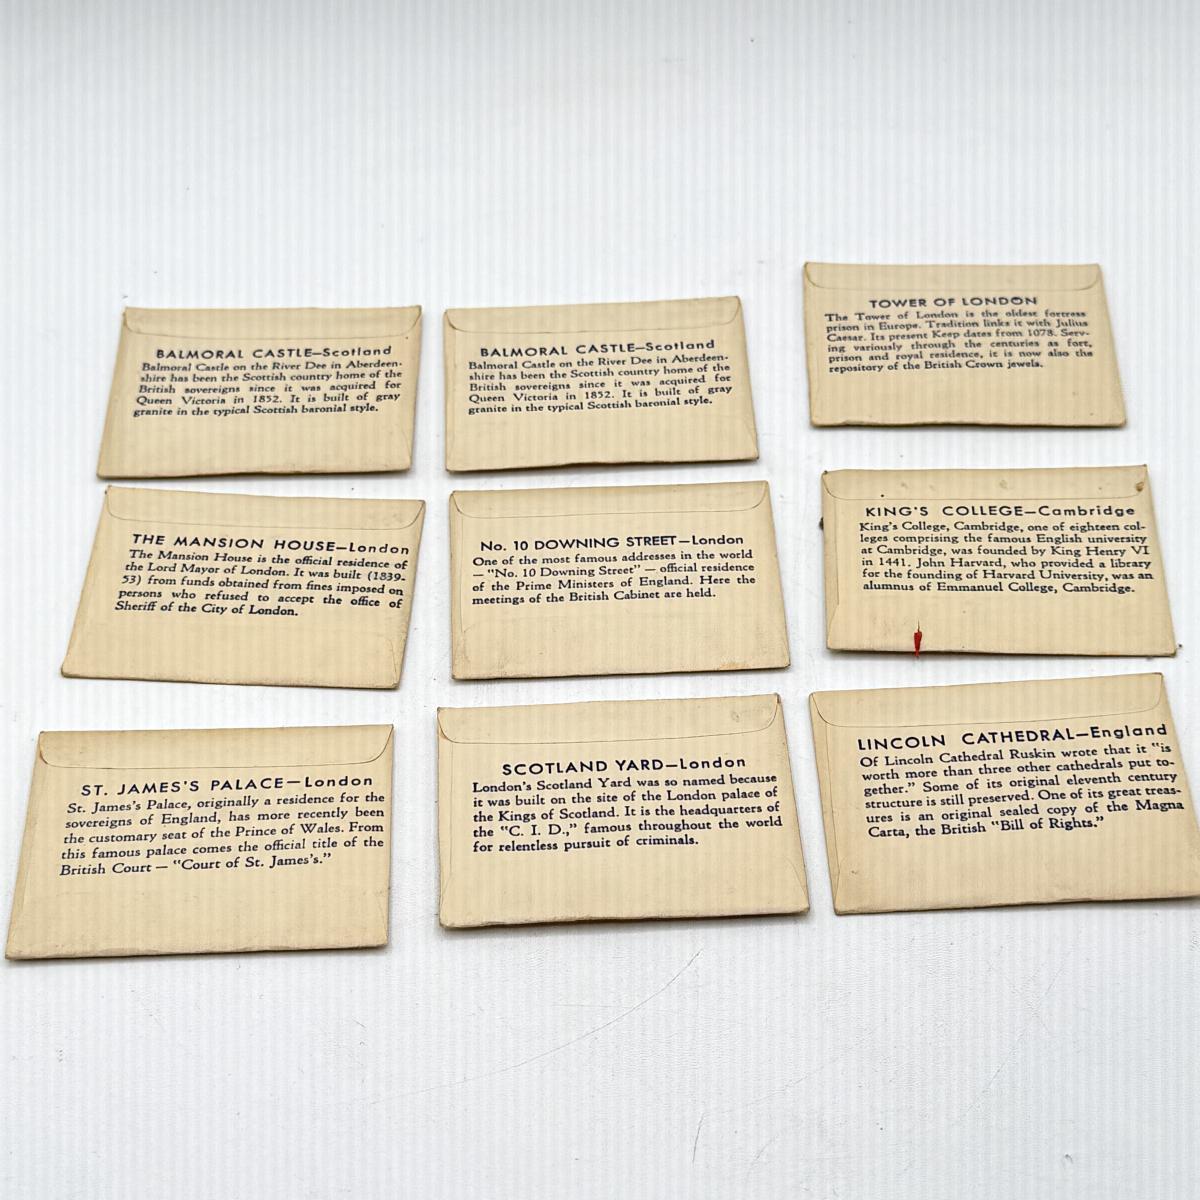 BALMORAL CASTLE—Scotland
Balmoral Castle on the River Dee in Aberdeen-
shire has been the Scottish country home of the
British sovereigns since it was acquired for
Queen Victoria in 1852. It is built of gray
granite in the typical Scottish baronial style.
BALMORAL CASTLE—Scotland
Balmoral Castle on the River Dee in Aberdeen-
shire has been the Scottish country home of the
British sovereigns since it was acquired for
Queen Victoria in 1852. It is built of gray
granite in the typical Scottish baronial style.
TOWER OF LONDON
The Tower of London is the oldest fortress
prison in Europe. Tradition links it with Julius
Caesar. Its present Keep dates from 1078. Serv-
ing variously through the centuries as fort,
prison and royal residence, it is now also the
repository of the British Crown jewels.
THE MANSION HOUSE—London
The Mansion House is the official residence of
the Lord Mayor of London. It was built (1839-
53) from funds obtained from fines imposed on
persons who refused to accept the office of
Sheriff of the City of London.
No. 10 DOWNING STREET—London
One of the most famous addresses in the world
— "No. 10 Downing Street" — official residence
of the Prime Ministers of England. Here the
meetings of the British Cabinet are held.
KING'S COLLEGE—Cambridge
King's College, Cambridge, one of eighteen col-
leges comprising the famous English university
at Cambridge, was founded by King Henry VI
in 1441. John Harvard, who provided a library
for the founding of Harvard University, was an
alumnus of Emmanuel College, Cambridge.
ST. JAMES'S PALACE—London
St. James's Palace, originally a residence for the
sovereigns of England, has more recently been
the customary seat of the Prince of Wales. From
this famous palace comes the official title of the
British Court — "Court of St. James's."
SCOTLAND YARD—London
London's Scotland Yard was so named because
it was built on the site of the London palace of
the Kings of Scotland. It is the headquarters of
the "C. I. D.," famous throughout the world
for relentless pursuit of criminals.
LINCOLN CATHEDRAL—England
Of Lincoln Cathedral Ruskin wrote that it "is
worth more than three other cathedrals put to-
gether." Some of its original eleventh century
structure is still preserved. One of its great treas-
ures is an original sealed copy of the Magna
Carta, the British "Bill of Rights."